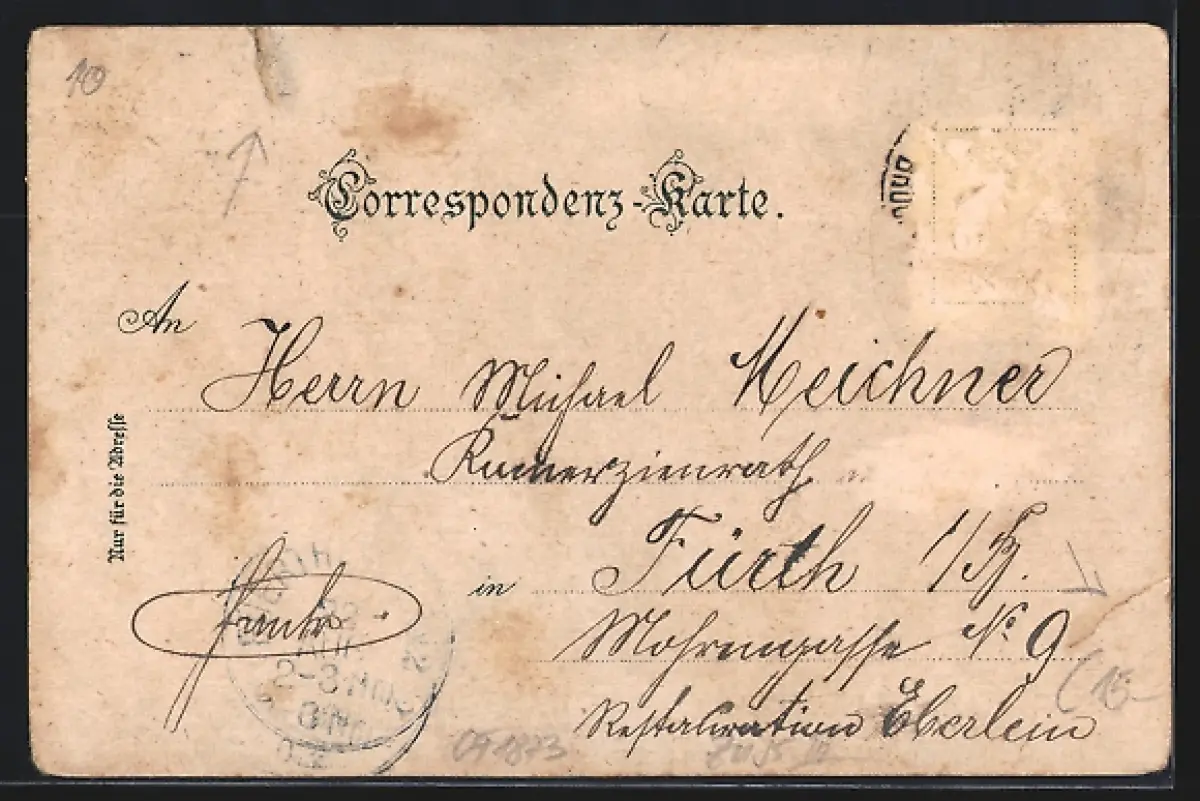 10
Correspondenz-Karte.
An
Herrn Michael Meichner
Kumerzienrath
Nur für die Adresse
in Fürth 1/B.
franko
Mohrengasse No. 9
2-3 Nm.
(15
Restauration Eberlein